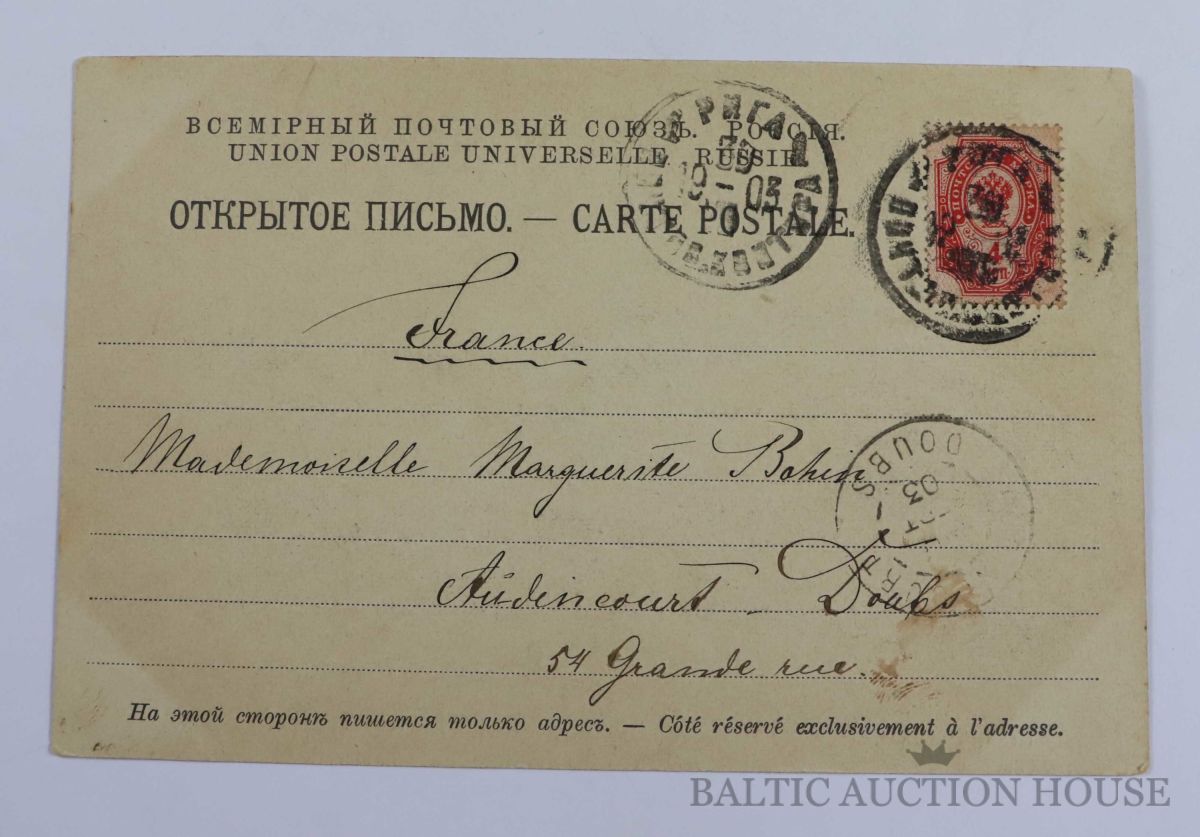 ВСЕМІРНЫЙ ПОЧТОВЫЙ СОЮЗЪ. РОССІЯ.
UNION POSTALE UNIVERSELLE. RUSSIE.
ОТКРЫТОЕ ПИСЬМО. — CARTE POSTALE.
РИГА
03
ПОЧТОВАЯ МАРКА
4
France
Mademoiselle Marguerite Bohin
DOUBS
03
Audincourt - Doubs
54 Grande rue.
На этой сторонѣ пишется только адресъ. — Côté réservé exclusivement à l'adresse.
BALTIC AUCTION HOUSE